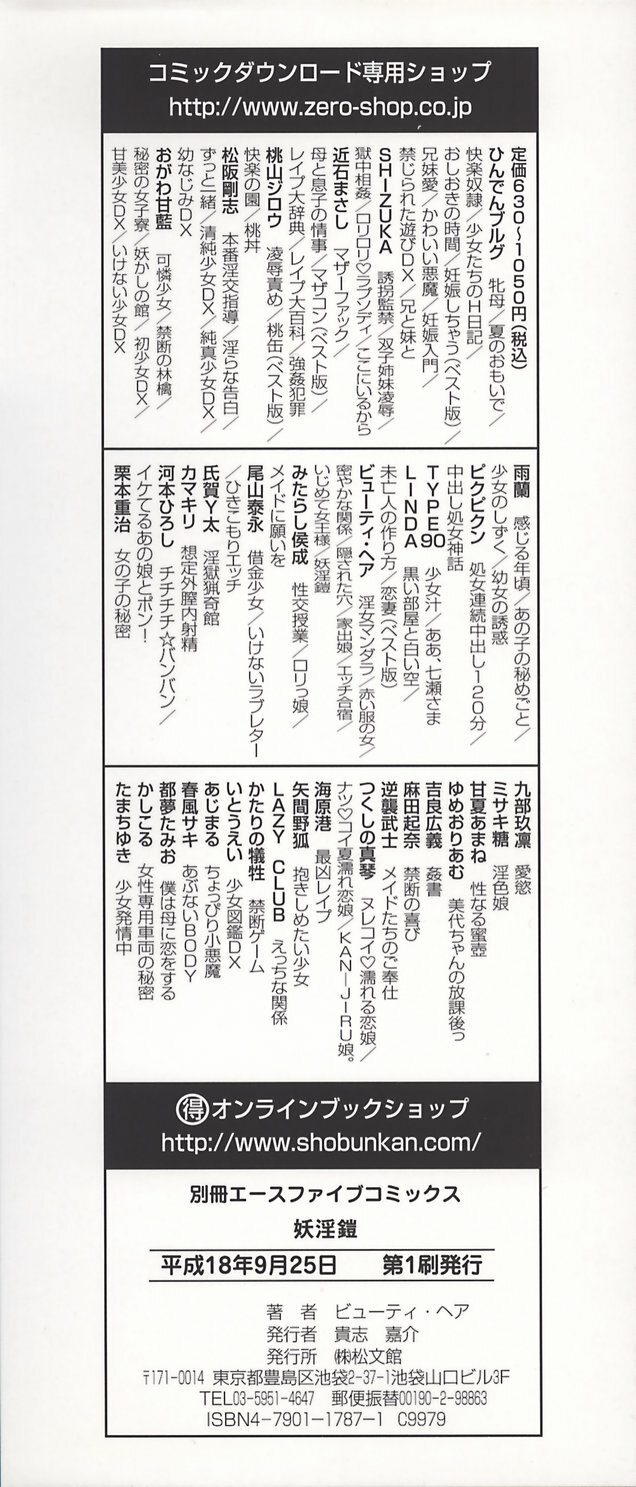 コミックダウンロード専用ショップ
http://www.zero-shop.co.jp
定価630〜1050円(税込)
ひんでんブルグ 牝母／夏のおもいで／
快楽奴隷／少女たちのH日記／
おしおきの時間／妊娠しちゃう(ベスト版)／
兄妹愛／かわいい悪魔／妊娠入門／
禁じられた遊びDX／兄と妹と
SHIZUKA 誘拐監禁／双子姉妹凌辱／
獄中相姦／ロリロリ♡ラプソディ／ここにいるから
近石まさし マザーファック／
母と息子の情事／マザコン(ベスト版)／
レイプ大辞典／レイプ大百科／強姦犯罪
桃山ジロウ 凌辱責め／桃缶(ベスト版)／
快楽の園／桃丼
松阪剛志 本番淫交指導／淫らな告白／
ずっと一緒／清純少女DX／純真少女DX／
幼なじみDX
おがわ甘藍 可憐少女／禁断の林檎／
秘密の女子寮／妖かしの館／初少女DX／
甘美少女DX／いけない少女DX
雨蘭 感じる年頃／あの子の秘めごと／
少女のしずく／幼女の誘惑
ピクピクン 処女連続中出し120分／
中出し処女神話
TYPE90 少女汁／ああ、七瀬さま
LINDA 黒い部屋と白い空／
未亡人の作り方／恋妻(ベスト版)
ビューティ・ヘア 淫女マンダラ／赤い服の女／
密やかな関係／隠された穴／家出娘／エッチ合宿／
いじめて女王様／妖淫鎧
みたらし侯成 性交授業／ロリっ娘／
メイドに願いを
尾山泰永 借金少女／いけないラブレター
／ひきこもりエッチ
氏賀Y太 淫獄猟奇館
カマキリ 想定外膣内射精
河本ひろし チチチチ☆バンバン／
イケてるあの娘とポン！
栗本重治 女の子の秘密
九部玖凛 愛慾
ミサキ糖 淫色娘
甘夏あまね 性なる蜜壺
ゆめおりあむ 美代ちゃんの放課後っ
吉良広義 姦書
麻田起奈 禁断の喜び
逆襲武士 メイドたちのご奉仕
つくしの真琴 ヌレコイ♡濡れる恋娘／
ナツ♡コイ夏濡れ恋娘／KAN−JIRU娘。
海原港 最凶レイプ
矢間野狐 抱きしめたい少女
LAZY CLUB えっちな関係
かたりの犠牲 禁断ゲーム
いとうえい 少女図鑑DX
あじまる ちょっぴり小悪魔
春風サキ あぶないBODY
都夢たみお 僕は母に恋をする
かしこる 女性専用車両の秘密
たまちゆき 少女発情中
得オンラインブックショップ
http://www.shobunkan.com/
別冊エースファイブコミックス
妖淫鎧
平成18年9月25日 第1刷発行
著 者 ビューティ・ヘア
発行者 貴志 嘉介
発行所 ㈱松文館
〒171-0014 東京都豊島区池袋2-37-1池袋山口ビル3F
TEL03-5951-4647 郵便振替00190-2-98863
ISBN4-7901-1787-1 C9979